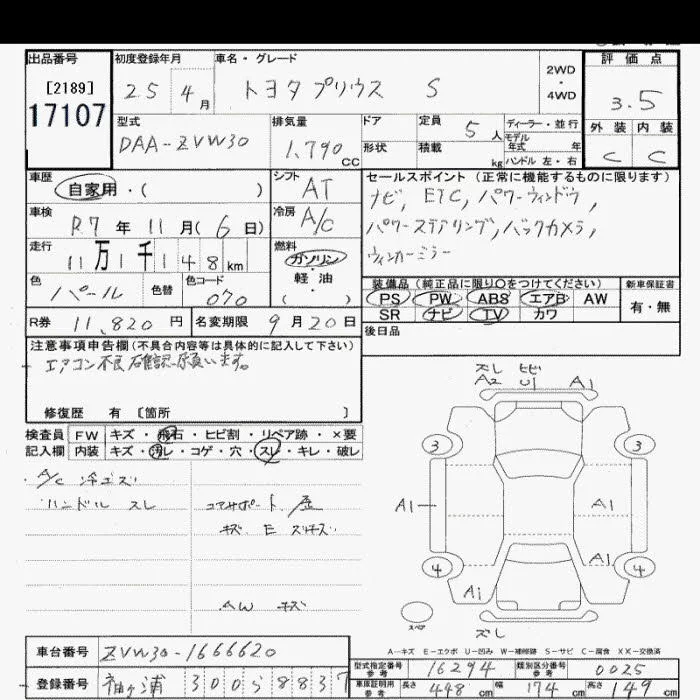 出品番号
[2189]
17107
初度登録年月
25 4月
車名・グレード
トヨタ プリウス S
2WD
・
4WD
評価点
3.5
外装 内装
C C
型式
DAA-ZVW30
排気量
1,790 CC
ドア
形状
定員 5人
積載 kg
ディーラー・並行
モデル
年式 年
ハンドル 左・右
車歴
自家用・( )
シフト
AT
セールスポイント(正常に機能するものに限ります)
ナビ, ETC, パワーウィンドウ,
パワーステアリング, バックカメラ,
ウィンカーミラー
車検
R7年11月(6日)
冷房
A/C
走行
11万1千148km
燃料
ガソリン
・
軽油
( )
色
パール
色替
色コード
070
装備品(純正品に限り○をつけてください)
PS PW ABS エアB AW
SR ナビ TV カワ
新車保証書
有・無
R券 11,820円
名変期限 9月20日
後日品
注意事項申告欄(不具合内容等は具体的に記入して下さい)
エアコン不良 確認お願います。
修復歴 有 [箇所 ]
検査員
記入欄
FW キズ・飛石・ヒビ割・リペア跡・×要
内装 キズ・汚レ・コゲ・穴・スレ・キレ・破レ
A/C 冷エズ
ハンドル スレ
コアサポート
キズ E
AW キズ
スレ ヒビ
A2 U1 A1
3 3
A1 A1
A1
4 4
A1
スペア
スレ
A-キズ E-エクボ U-凹み W-補修跡 S-サビ C-腐食 XX-交換済
車台番号 ZVW30-1666620
登録番号 袖ヶ浦 300 ち 8837
型式指定番号
参考
16294
類別区分番号
参考
0025
車庫証明用
参考
長さ 448cm 幅 174cm 高さ 149cm